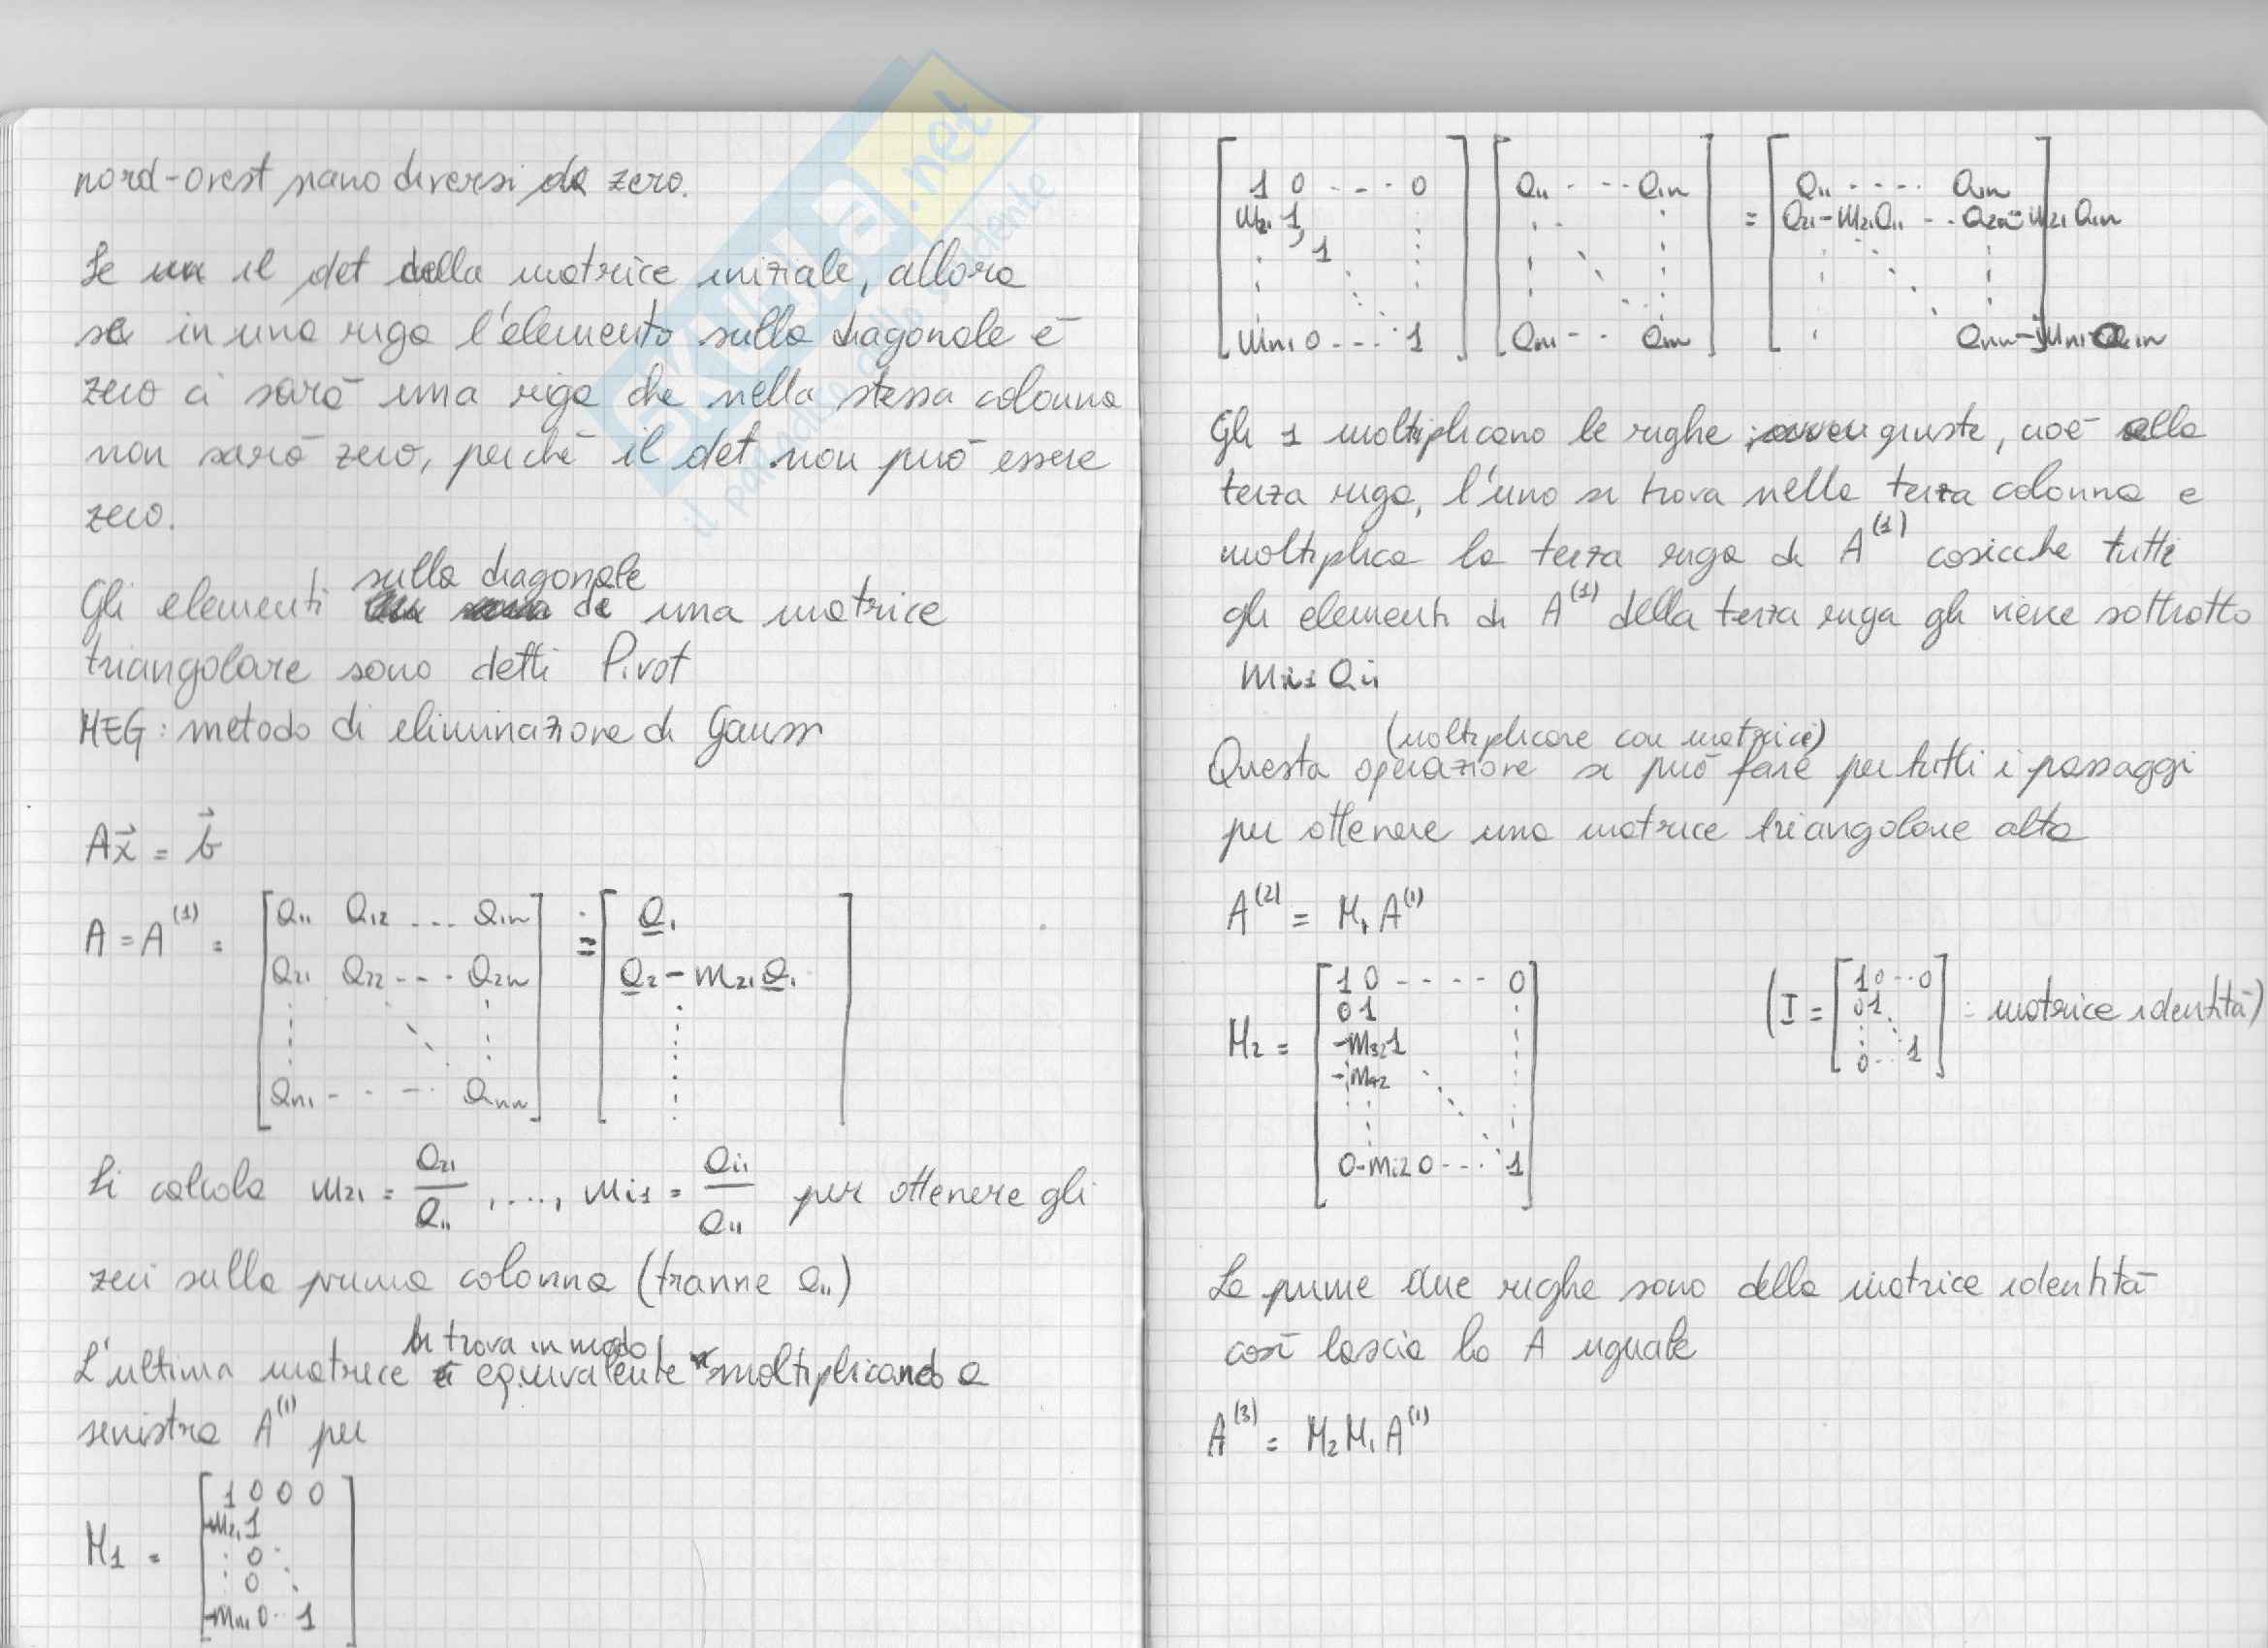 nord-ovest siano diversi da zero.
Se il det della matrice iniziale, allora
se in una riga l'elemento sulla diagonale è
zero ci sarà una riga che nella stessa colonna
non sarà zero, perché il det non può essere
zero.
sulla diagonale
Gli elementi di una matrice
triangolare sono detti Pivot
MEG: metodo di eliminazione di Gauss
Ax⃗ = b⃗
A = A^(1) = [a11 a12 ... a1n = [a̲1
a21 a22 --- a2n a̲2 - m21 a̲1
an1 - - - - ann]
Si calcola m21 = a21/a11 , ..., mi1 = ai1/a11 per ottenere gli
zeri sulla prima colonna (tranne a11)
si trova in modo
L'ultima matrice equivalente moltiplicando a
sinistra A^(1) per
M1 = [1 0 0 0
-m21 1
: 0
: 0
-mn1 0 .. 1]
[1 0 ---- 0 [a11 - - - a1n = [a11 ---- a1n
m21 1 a21-m21a11 - - a2n-m21a1n
1
mn1 0 --- 1] an1 - - ann] ann-mn1a1n]
Gli 1 moltiplicano le righe giuste, cioè alla
terza riga, l'uno si trova nella terza colonna e
moltiplica la terza riga di A^(1) cosicche tutti
gli elementi di A^(1) della terza riga gli viene sottratto
(moltiplicare con matrici)
Questa operazione si può fare per tutti i passaggi
per ottenere una matrice triangolare alta
A^(2) = M1 A^(1)
M2 = [1 0 ---- 0
0 1
-m32 1
-m42
0 -mi2 0 --- 1]
(I = [1 0 -- 0
0 1
0 -- 1] : matrice identità)
Le prime due righe sono della matrice identità
così lascia la A uguale
A^(3) = M2 M1 A^(1)
SKUOLA.net
il paradiso dello studente